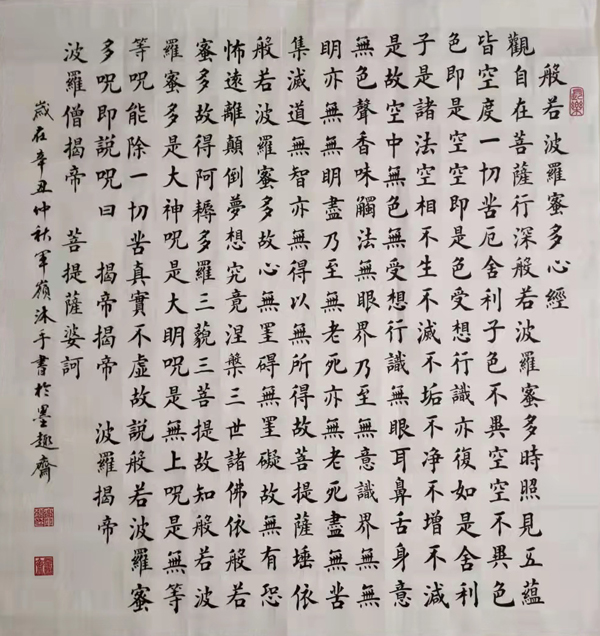 般若波羅蜜多心經
觀自在菩薩行深般若波羅蜜多時照見五蘊
皆空度一切苦厄舍利子色不異空空不異色
色即是空空即是色受想行識亦復如是舍利
子是諸法空相不生不滅不垢不净不增不減
是故空中無色無受想行識無眼耳鼻舌身意
無色聲香味觸法無眼界乃至無意識界無無
明亦無無明盡乃至無老死亦無老死盡無苦
集滅道無智亦無得以無所得故菩提薩埵依
般若波羅蜜多故心無罣碍無罣礙故無有恐
怖遠離顛倒夢想究竟涅槃三世諸佛依般若
蜜多故得阿耨多羅三藐三菩提故知般若波
羅蜜多是大神呪是大明呪是無上呪是無等
等呪能除一切苦真實不虛故説般若波羅蜜
多呪即説呪曰 揭帝揭帝 波羅揭帝
波羅僧揭帝 菩提薩婆訶
歲在辛丑仲秋軍嶺沐手書於墨趣齋